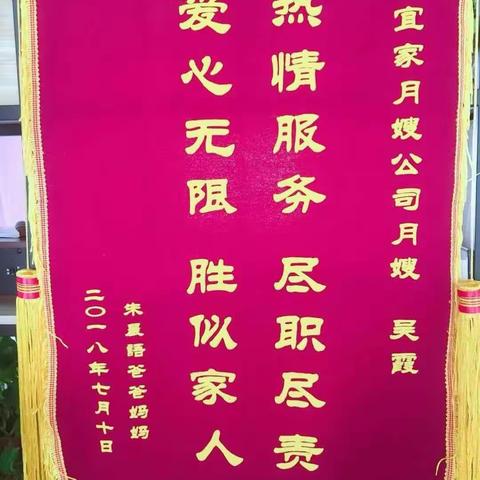 宜家月嫂公司月嫂 吴霞
热情服务 尽职尽责
爱心无限 胜似家人
宋夏語爸爸妈妈
二〇一八年七月十日